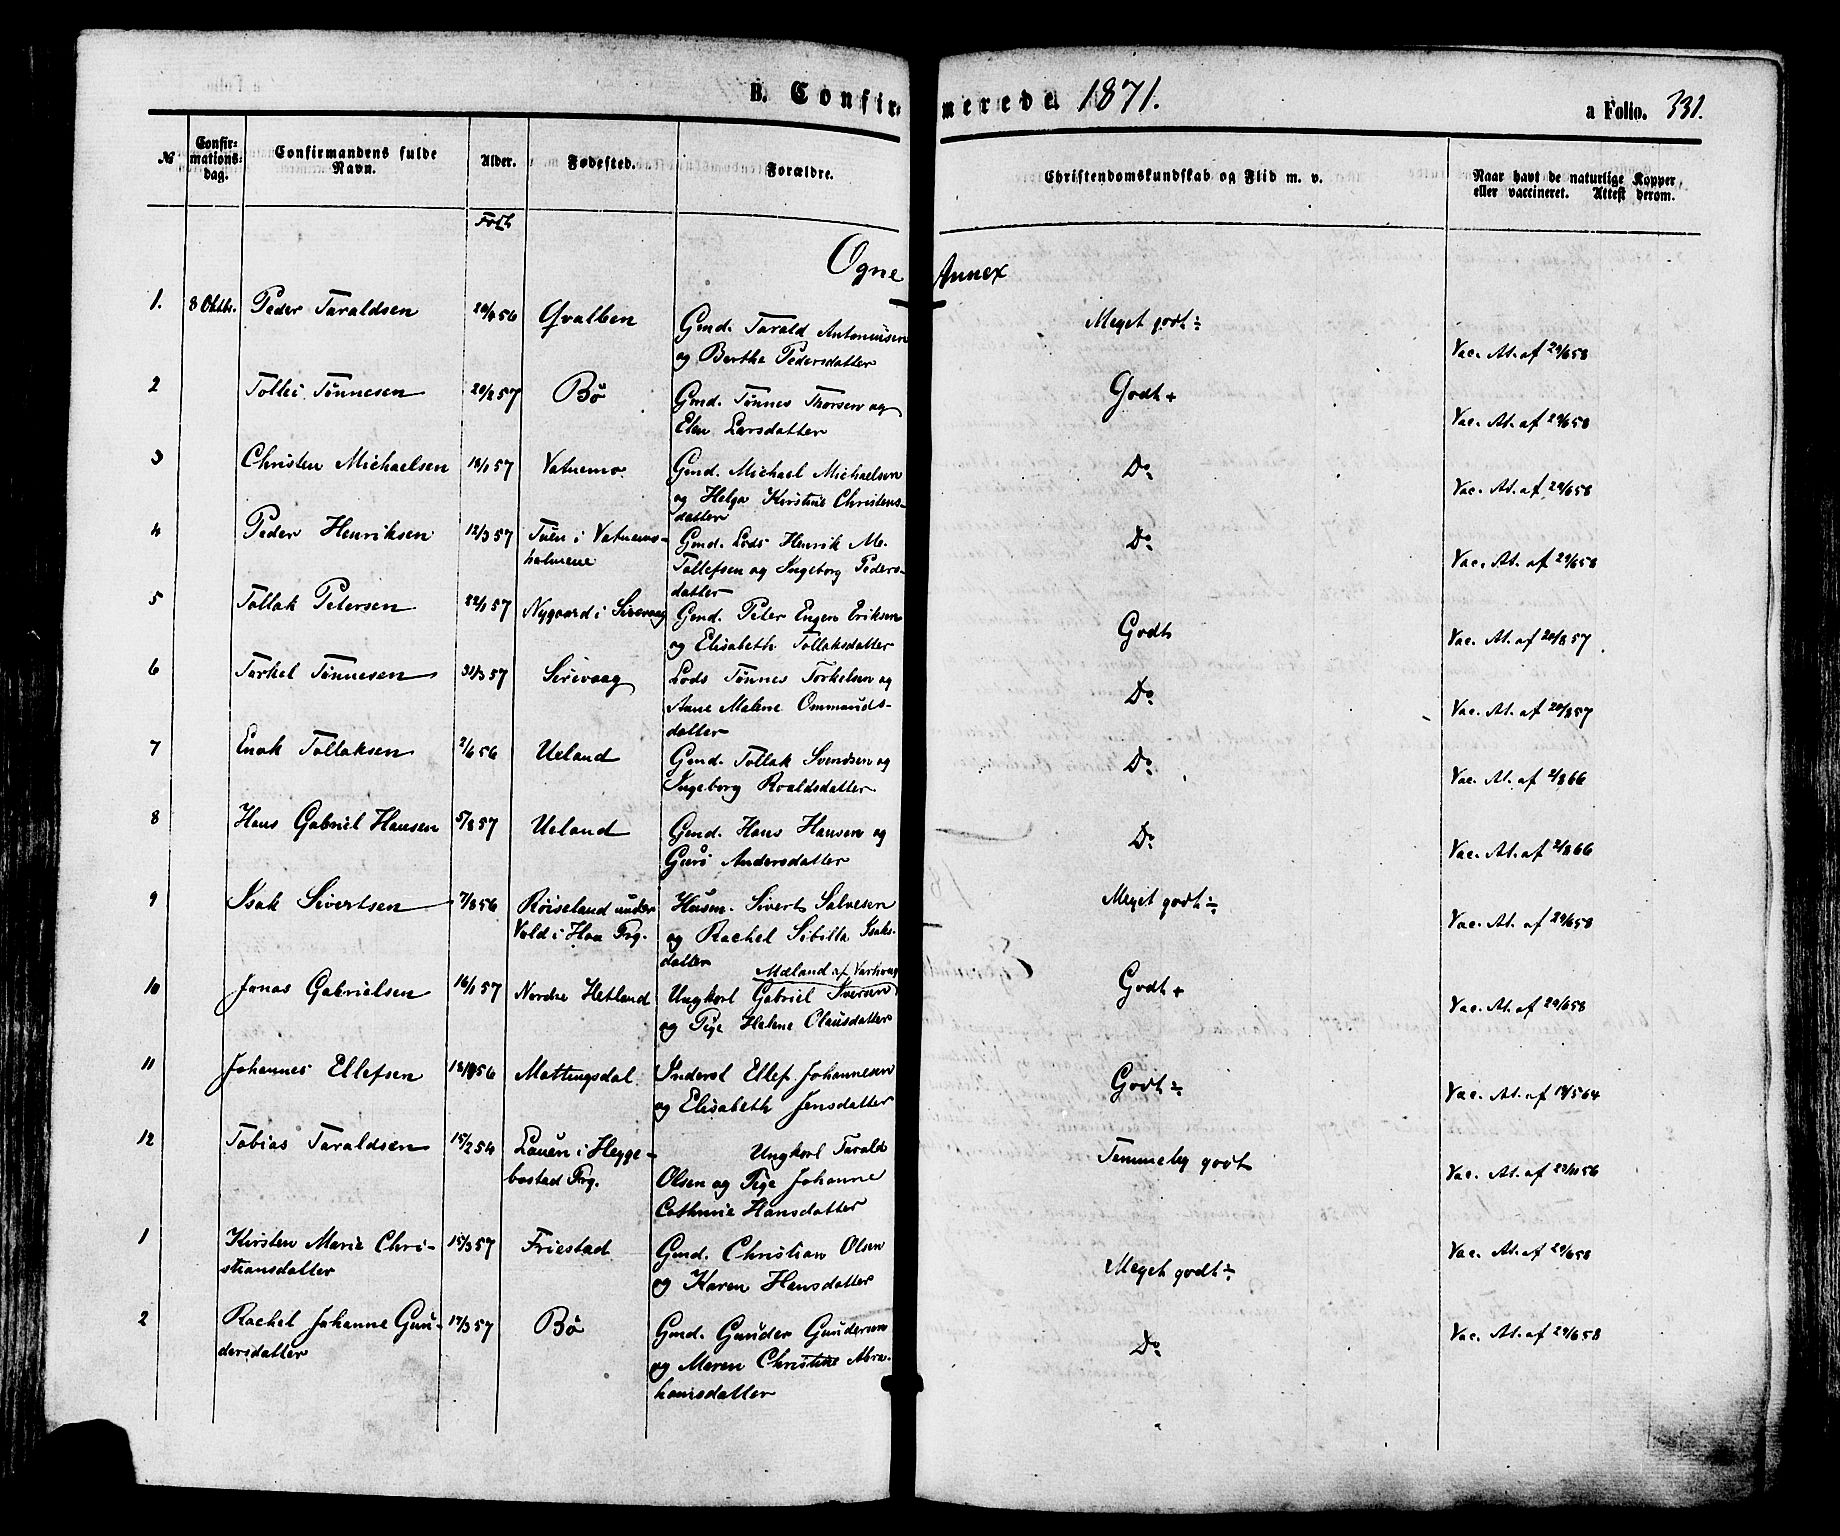 B. Confirmerede. 1871.
a Folio. 331.
№
Confirmations-dag.
Confirmandens fulde Navn.
Alder.
Fødested.
Forældre.
Christendomskundskab og Flid m. v.
Naar havt de naturlige Kopper eller vaccineret. Attest derom.
Født
Ogne Annex
1. 8 Oktbr. Peder Taraldsen 56 Qvalben Gmd. Tarald Antonuisen Meget godt ÷
og Bertha Pedersdatter Vac. At. af 29/6 58
2 Tollei Tønnesen 57 Bø Gmd. Tønnes Thorsen og Godt +
Elen Larsdatter Vac. At. af 29/6 58
3 Christen Michaelsen 57 Vatnemo Gmd. Michael Michaelsen Do
og Helga Kirstine Christens- Vac. At. af 29/6 58
datter
4 Peder Henriksen 12/3 57 i Vatnemo- Gmd. Lods Henrik M. Do
holmene Tollefsen og Ingeborg Peders- Vac. At. af 29/6 58
datter
5 Tollak Petersen 22/1 57 Nygaard i Sirevaag Gmd. Peter Engen Eriksen Godt
og Elisabeth Tollaksdatter Vac. At. af 20/8 57
6 Torkel Tønnesen 31/3 57 Sirevaag Lods Tønnes Torkelsen og Do
Anne Malene Ommunds- Vac. At. af 20/8 57
datter
7 Enok Tollaksen 2/6 56 Ueland Gmd. Tollak Svendsen og Do
Ingeborg Roaldsdatter Vac. At. af 2/8 66
8 Hans Gabriel Hansen 5/8 57 Ueland Gmd. Hans Hansen og Do
Guri Andersdatter Vac. At. af 2/8 66
9 Isak Sivertsen 7/8 56 Røiseland under Husm. Sivert Salvesen Meget godt ÷
Vold i Haa Prg. og Rachel Sibilla Isaks- Vac. At. af 29/6 58
datter
Mæland af Varhoug
10 Jonas Gabrielsen 16/1 57 Nordre Hetland Ungkarl Gabriel Iversen Godt +
og Pige Helene Clausdatter Vac. At. af 29/6 58
11 Johannes Ellefsen 56 Mattingsdal Inderst Ellef Johannesen Godt ÷
og Elisabeth Jensdatter Vac. At. af 64
12 Tobias Taraldsen 15/2 54 Lauen i Hegge- Ungkarl Tarald Temmelig godt
bostad Prg. Olsen og Pige Johanne Vac. At. af 56
Cathrine Hansdatter
1 Kirsten Marie Chri- 15/3 57 Friestad Gmd. Christian Olsen Meget godt ÷
stiansdatter og Karen Hansdatter Vac. At. af 29/6 58
2 Rachel Johanne Gun- 17/3 57 Bø Gmd. Gunder Gundersen Do
dersdatter og Maren Christine Abra- Vac. At. af 29/6 58
hamsdatter